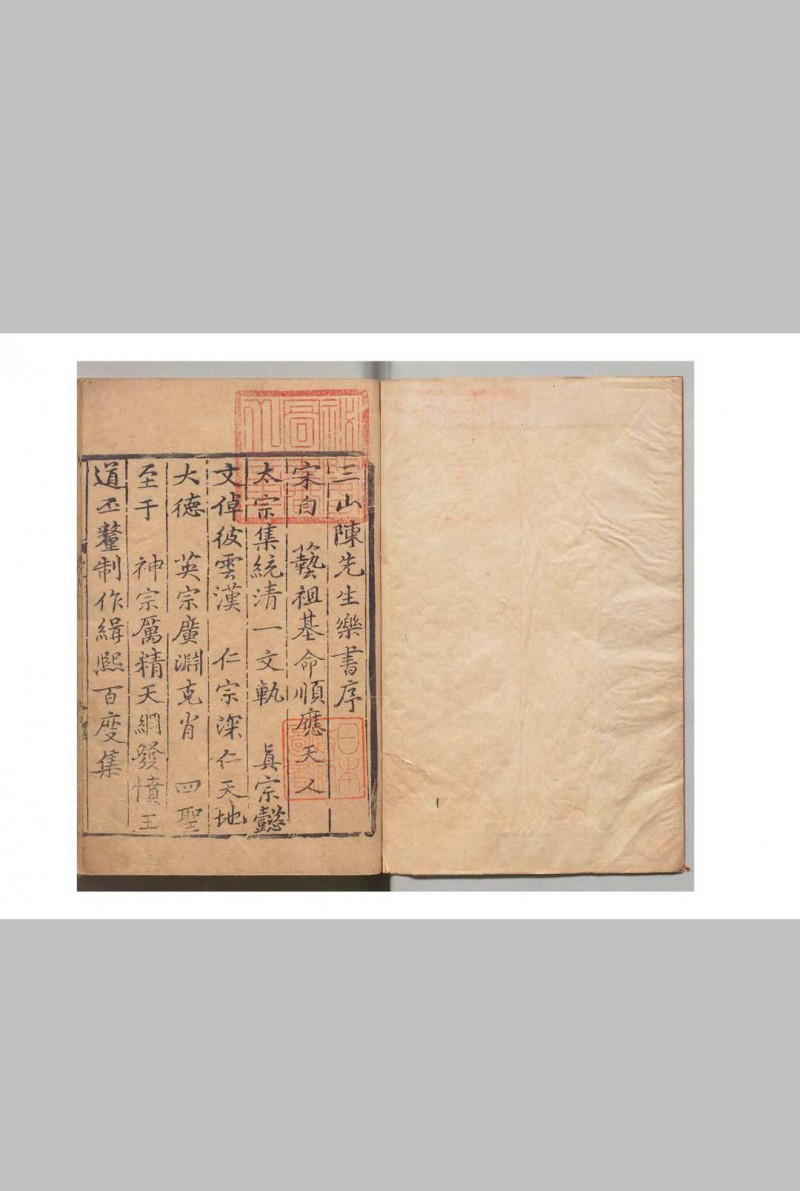 三山陳先生樂書序
宋自　藝祖基命順應天人
太宗集統清一文軌　眞宗懿
文倬彼雲漢　仁宗深仁天地
大德　英宗廣淵克肖　四聖
至于　神宗厲精天綱發憤王
道丕釐制作緝熙百度集
日本